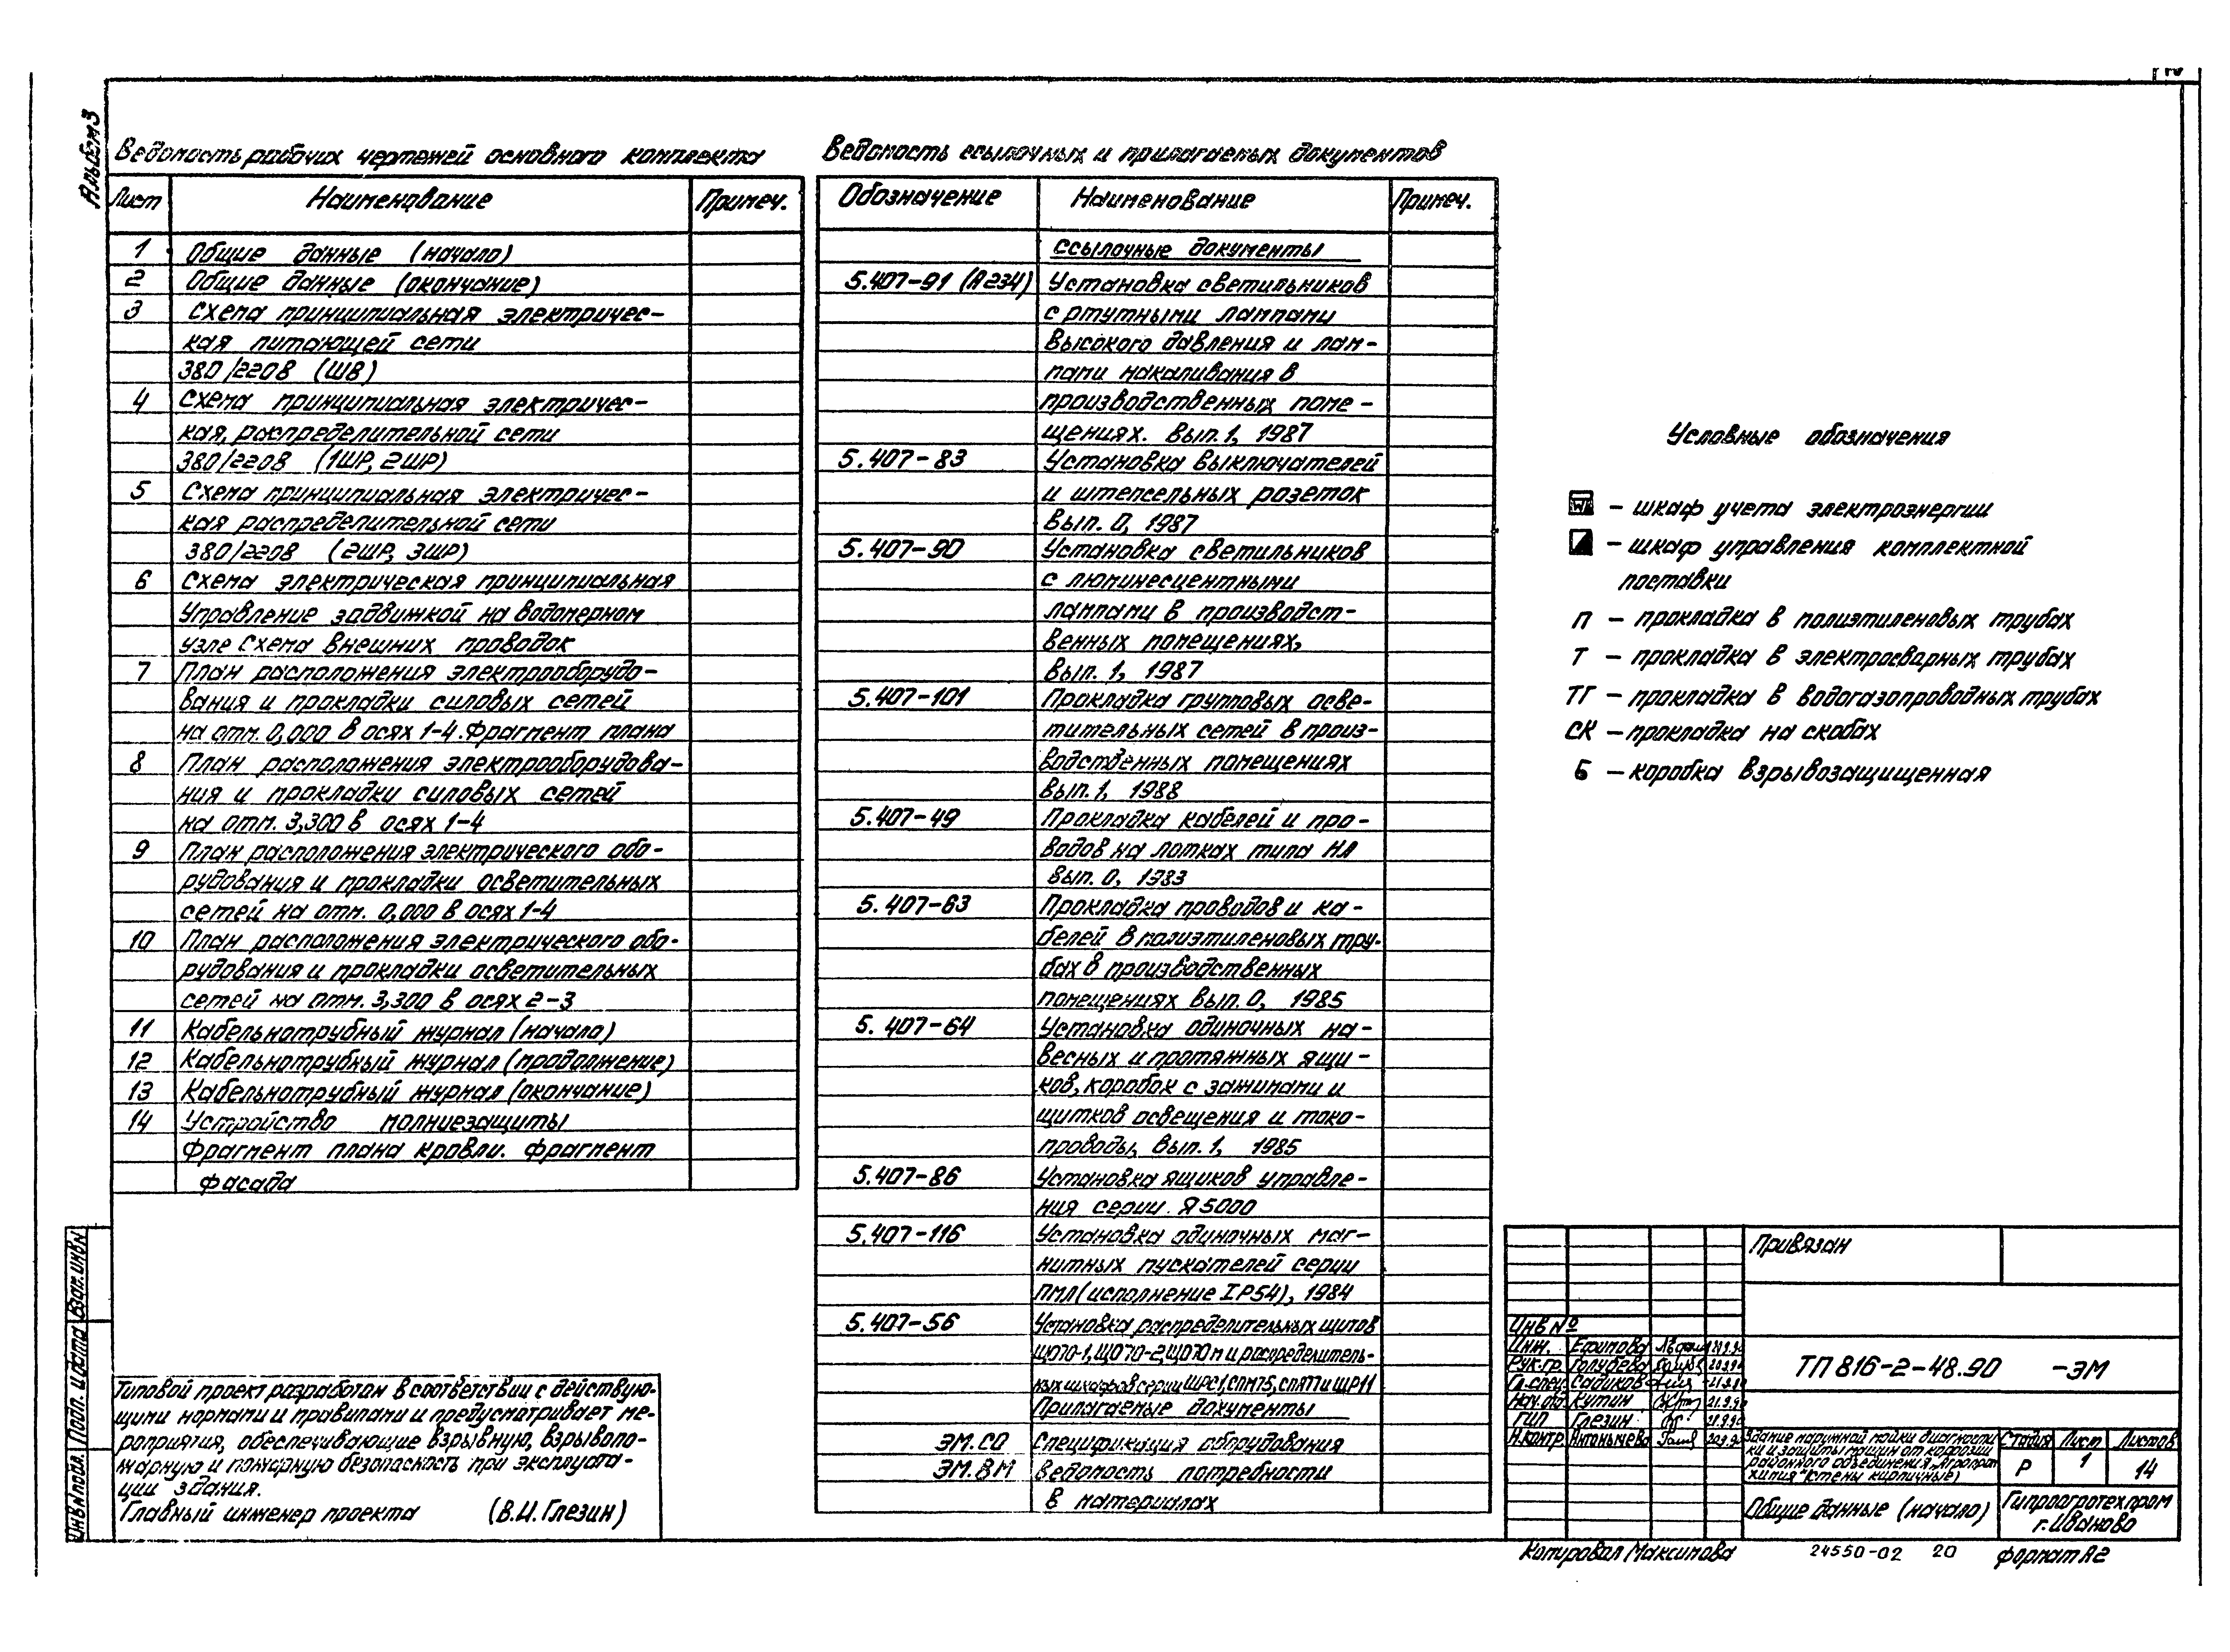 Альбом 3
Ведомость рабочих чертежей основного комплекта
Лист Наименование Примеч.
1 Общие данные (начало)
2 Общие данные (окончание)
3 Схема принципиальная электричес-
кая питающей сети
380/220В (ШВ)
4 Схема принципиальная электричес-
кая, распределительной сети
380/220В (1ШР, 2ШР)
5 Схема принципиальная электричес-
кая распределительной сети
380/220В (2ШР, 3ШР)
6 Схема электрическая принципиальная
Управление задвижкой на водомерном
узле Схема внешних проводок
7 План расположения электрооборудо-
вания и прокладки силовых сетей
на отм. 0,000 в осях 1-4. Фрагмент плана
8 План расположения электрооборудова-
ния и прокладки силовых сетей
на отм. 3,300 в осях 1-4
9 План расположения электрического обо-
рудования и прокладки осветительных
сетей на отм. 0,000 в осях 1-4
10 План расположения электрического обо-
рудования и прокладки осветительных
сетей на отм. 3,300 в осях 2-3
11 Кабельнотрубный журнал (начало)
12 Кабельнотрубный журнал (продолжение)
13 Кабельнотрубный журнал (окончание)
14 Устройство молниезащиты
Фрагмент плана кровли. Фрагмент
фасада
Типовой проект разработан в соответствии с действую-
щими нормами и правилами и предусматривает ме-
роприятия, обеспечивающие взрывную, взрывопо-
жарную и пожарную безопасность при эксплуата-
ции здания.
Главный инженер проекта (В.И. Глезин)
Ведомость ссылочных и прилагаемых документов
Обозначение Наименование Примеч.
ссылочные документы
5.407-91 (А234) Установка светильников
с ртутными лампами
высокого давления и лам-
пами накаливания в
производственных поме-
щениях. Вып. 1, 1987
5.407-83 Установка выключателей
и штепсельных розеток
Вып. 0, 1987
5.407-90 Установка светильников
с люминесцентными
лампами в производст-
венных помещениях,
Вып. 1, 1987
5.407-101 Прокладка групповых осве-
тительных сетей в произ-
водственных помещениях
Вып. 1, 1988
5.407-49 Прокладка кабелей и про-
водов на лотках типа НЛ
Вып. 0, 1983
5.407-63 Прокладка проводов и ка-
белей в полиэтиленовых тру-
бах в производственных
помещениях Вып. 0, 1985
5.407-64 Установка одиночных на-
весных и протяжных ящи-
ков, коробок с зажимами и
щитков освещения и токо-
проводы, Вып. 1, 1985
5.407-86 Установка ящиков управле-
ния серии Я5000
5.407-116 Установка одиночных маг-
нитных пускателей серии
ПМЛ (исполнение IP54), 1984
5.407-56 Установка распределительных щитов
ЩО70-1, ЩО70-2, ЩО70м и распределитель-
ных шкафов серии ШРС1, СПМ75, СПА77 и ШР11
Прилагаемые документы
ЭМ.СО Спецификация оборудования
ЭМ.ВМ Ведомость потребности
в материалах
Условные обозначения
– шкаф учета электроэнергии
– шкаф управления комплектной
поставки
П – прокладка в полиэтиленовых трубах
Т – прокладка в электросварных трубах
ТГ – прокладка в водогазопроводных трубах
СК – прокладка на скобах
Б – коробка взрывозащищенная
Привязан
Инв №
Инж. Ефимова
Рук. гр. Голубева
Гл. спец. Садиков
Нач. отд. Кутин
ГИП Глезин
Н. контр. Антонычева
ТП 816-2-48.90 -ЭМ
Здание наружной мойки диагности
ки и защиты машин от коррозии
районного объединения "Агропром
химия" (стены кирпичные)
Стадия Лист Листов
Р 1 14
Общие данные (начало)
Гипроагротехпром
г. Иваново
Копировал Максимова 24550-02 20 формат А2
Инв N подл. Подп. и дата Взам. инв N